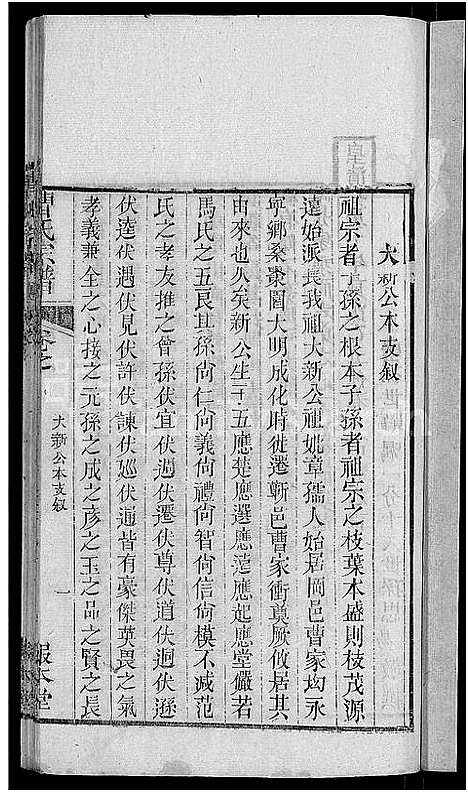 大新公本支叙
祖宗者子孫之根本子孫者祖宗之枝葉木盛則枝茂源
遠始派長我祖大新公祖妣章孺人始居岡邑曹家坳永
寧鄉桑棗園大明成化時徙遷蘄邑曹家衝奠厥攸居其
由來也久矣新公生子五應葵應選應達應起應堂儼若
馬氏之五良其孫尙仁尙義尙禮尙智尙信尙模不減范
氏之孝友推之曾孫伏宜伏過伏遷伏尊伏道伏迥伏遜
伏達伏遇伏見伏許伏諫伏巡伏遍皆有豪傑英畏之氣
孝義兼全之心接之元孫之成之彥之玉之品之賢之長
曹氏宗譜
卷之
大新公本支叙
一
報本堂